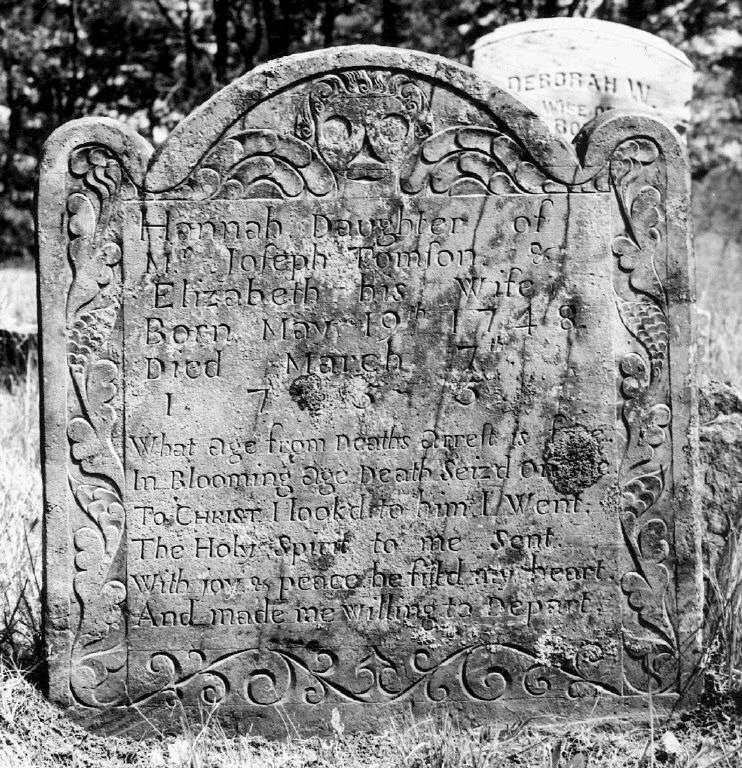 DEBORAH W.
WIFE
BO
Hannah Daughter of
Mr. Joſeph Tomſon &
Elizabeth his Wife
Born May 19th 1748.
Died March 7th
1 7
What age from Deaths arreſt is
In Blooming age Death Seiz'd
To CHRIST I look'd to him I Went.
The Holy Spirit to me Sent
With joy & peace he fill'd my heart.
And made me willing to Depart.